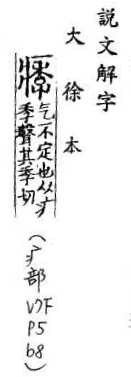 說文解字
大徐本
痵
气不定也从疒
季聲其季切
(疒部
VIIF
P5
b8)